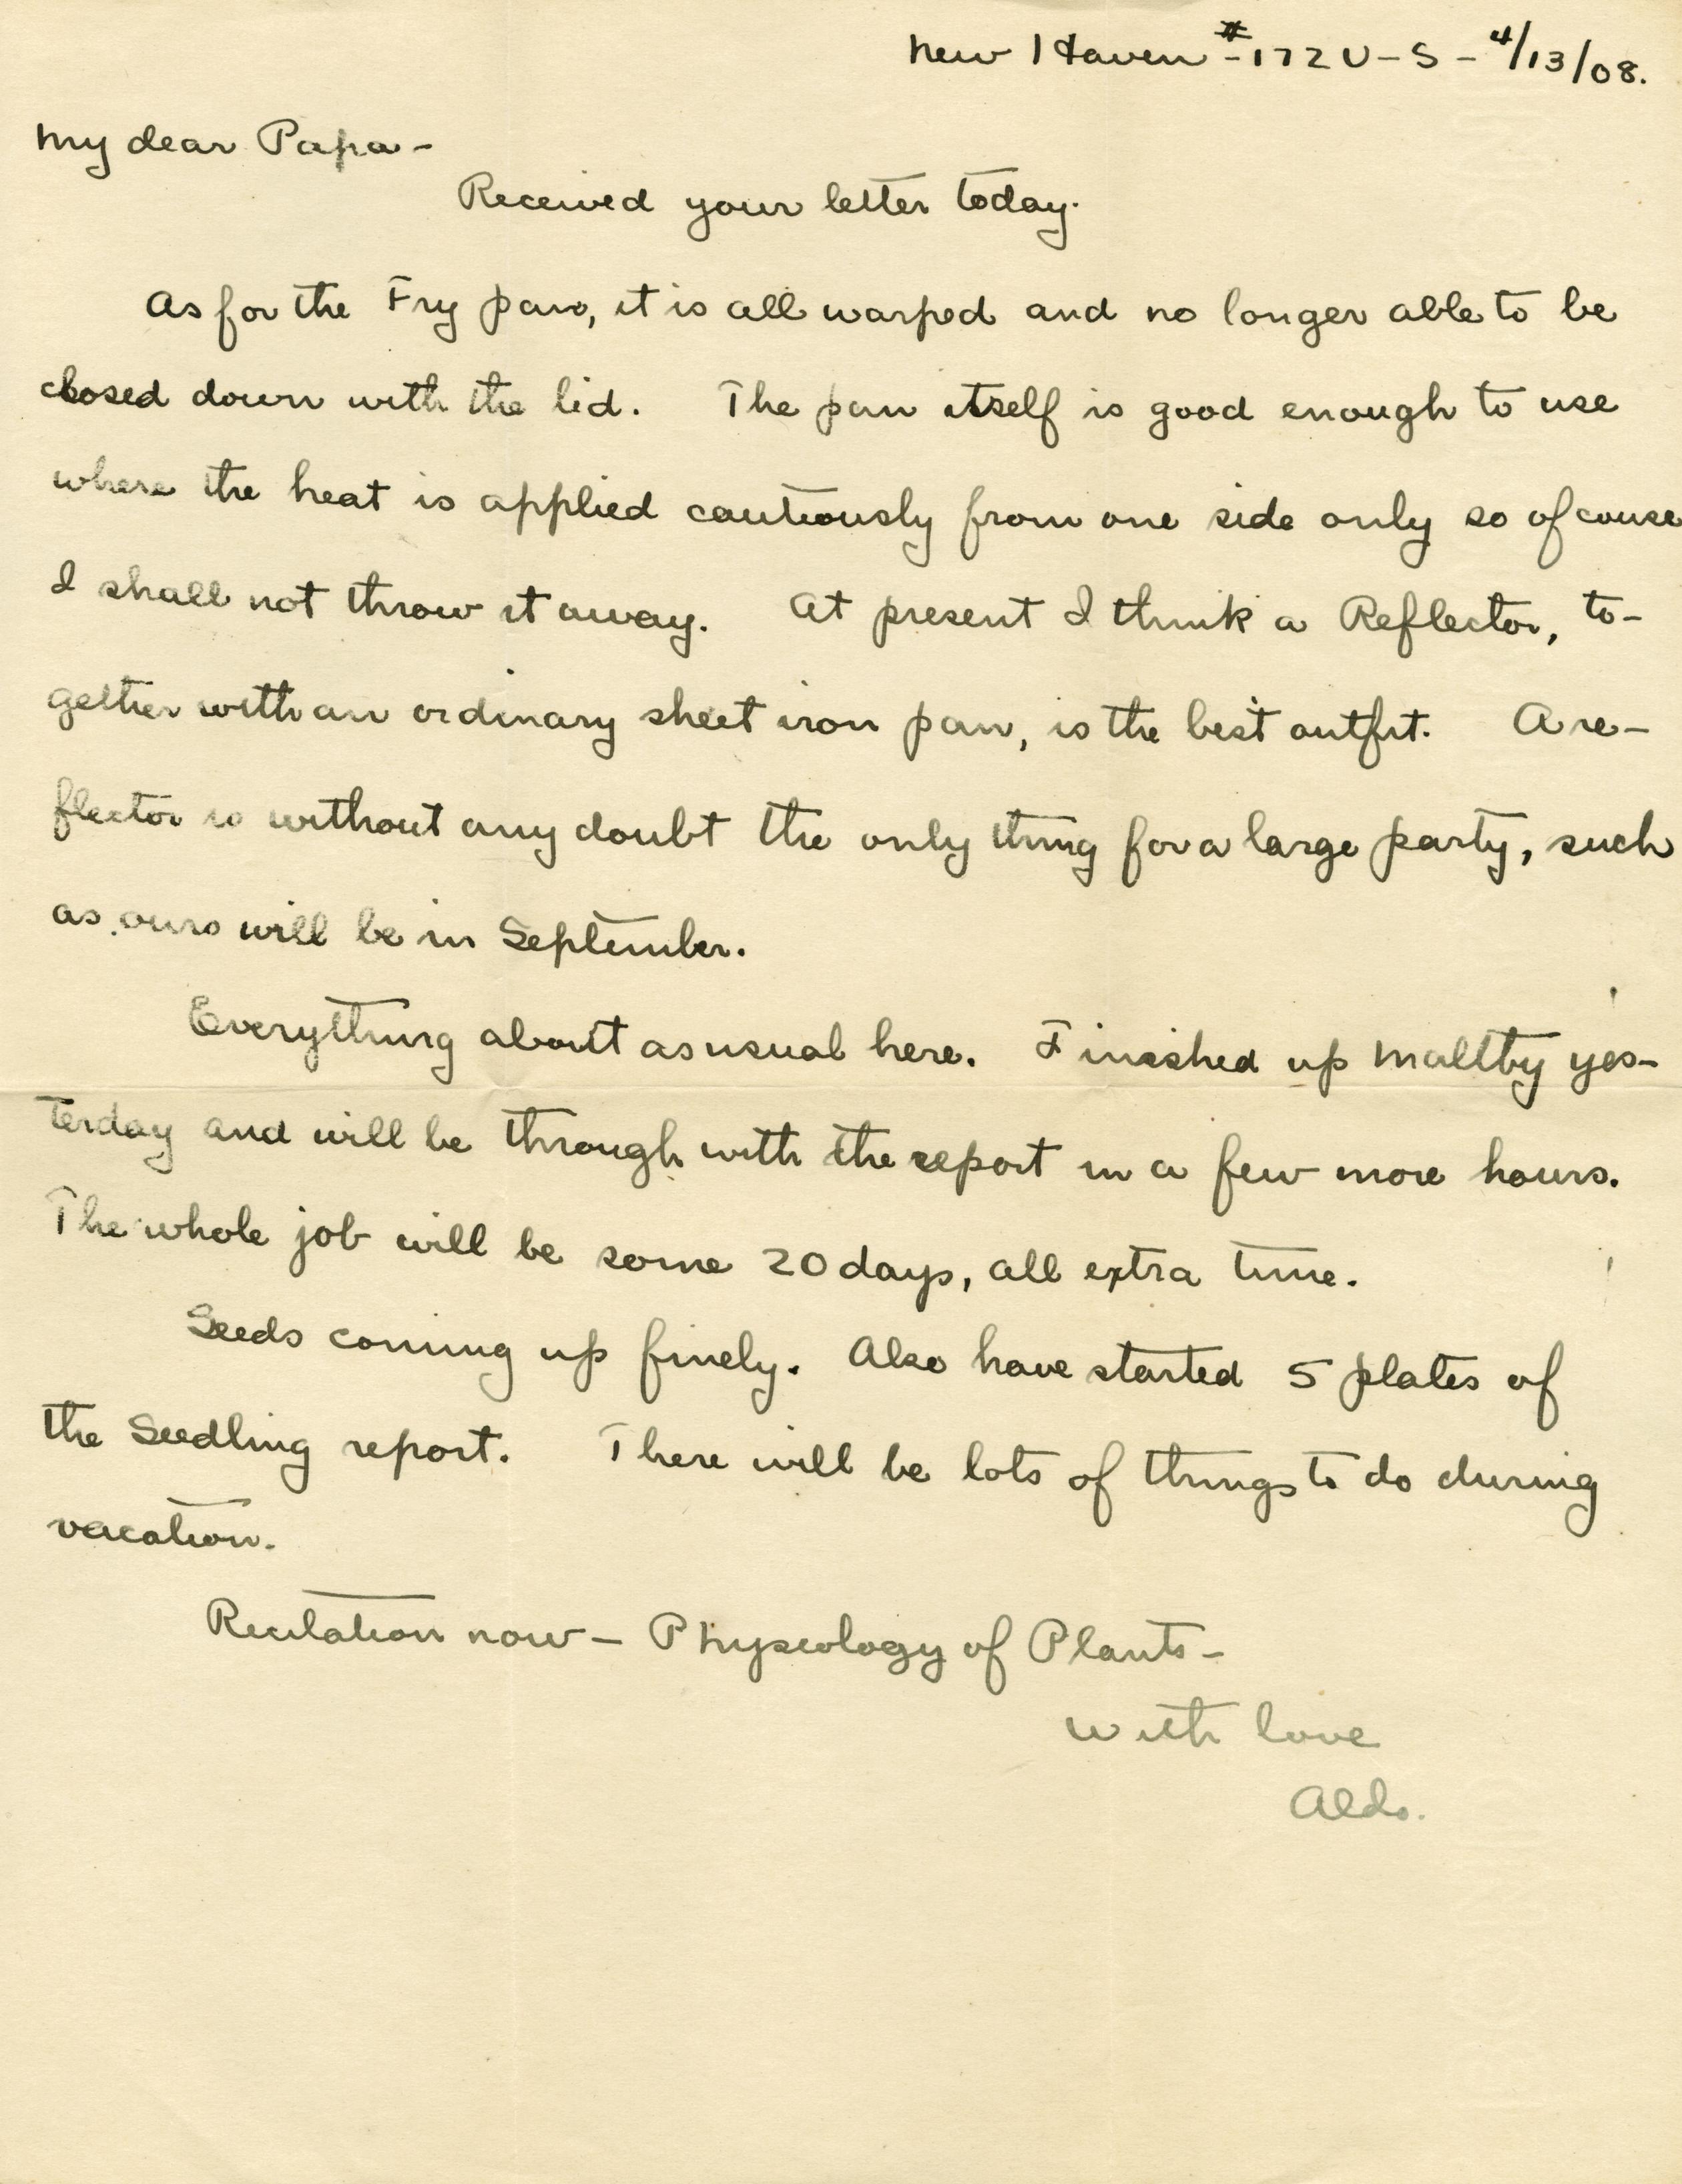 New Haven #-172 V-S- 4/13/08.
My dear Papa-
Received your letter today.
As for the Fry pan, it is all warped and no longer able to be
closed down with the lid. The pan itself is good enough to use
where the heat is applied cautiously from one side only so of couse
I shall not throw it away. At present I think a Reflector, to-
gether with an ordinary sheet iron pan, is the best outfit. A re-
flector is without any doubt the only thing for a large party, such
as ours will be in September.
Everything about as usual here. Finished up Maltby yes-
terday and will be through with the report in a few more hours.
The whole job will be some 20 days, all extra time.
Seeds coming up finely. Also have started 5 plates of
the Seedling report. There will be lots of things to do during
vacation.
Recitation now - Physiology of Plants-
With love
Aldo.